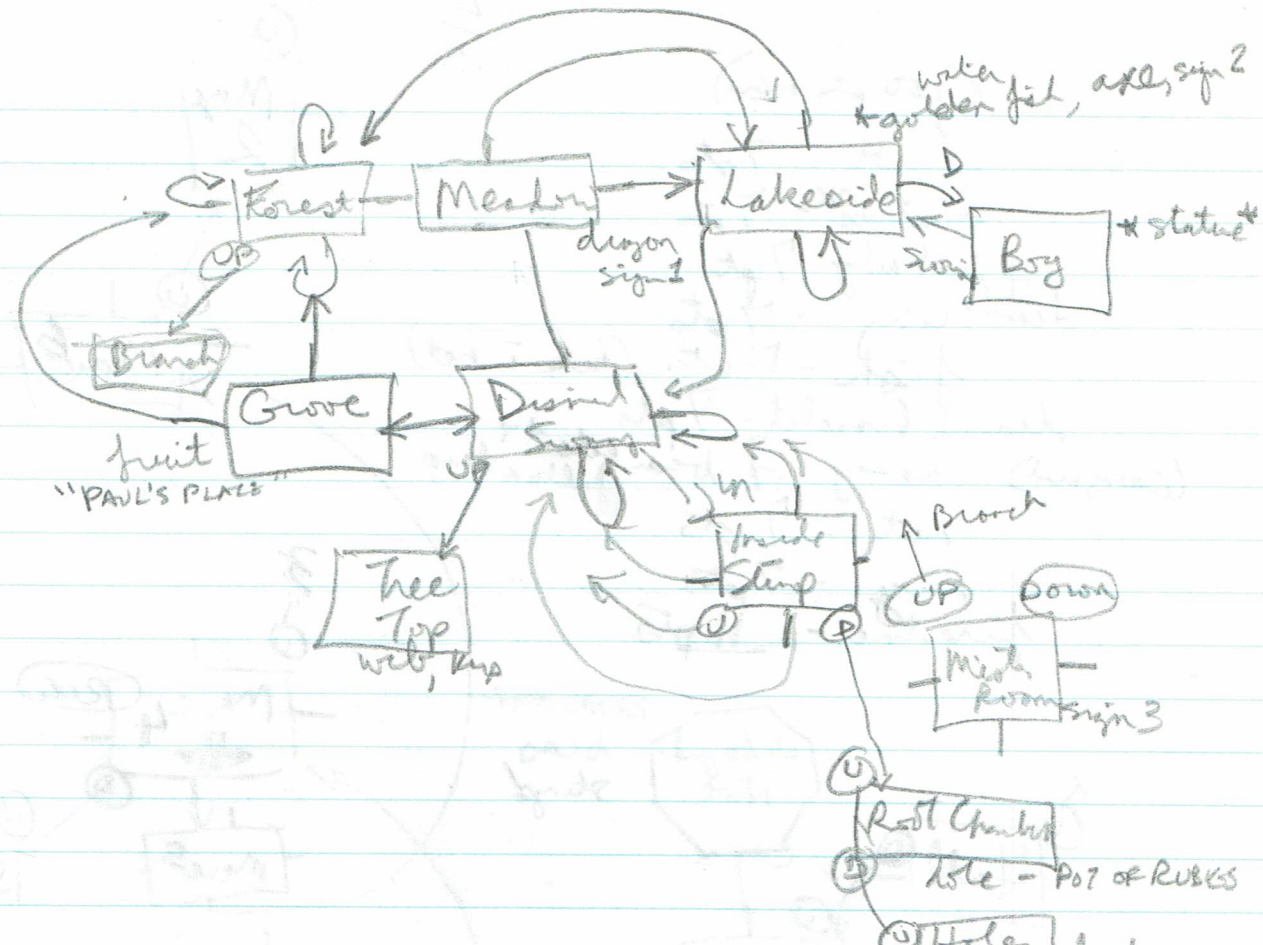 water
*golden fish, axe, sign 2
D
Forest
Meadow
Lakeside
*statue*
dragon
sign 1
Bog
UP
Branch
Grove
Dismal
Swamp
fruit
"PAUL'S PLACE"
UP
IN
Inside
Stump
Branch
UP
Down
Tree
Top
web,
U
D
Misty
Room
sign 3
U
Root Chamber
D
hole - POT OF RUBIES
U
Hole